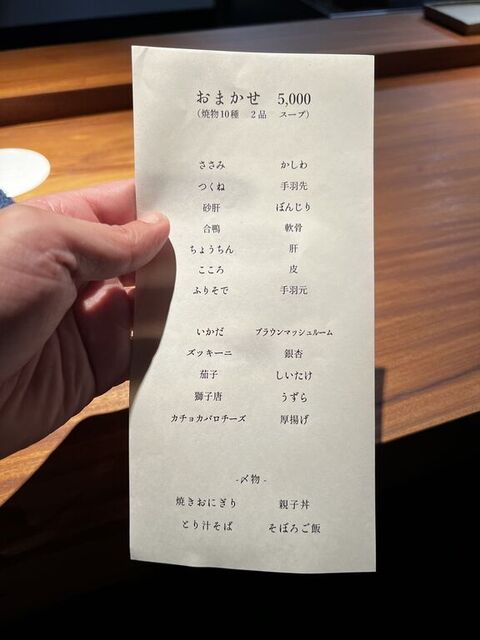 おまかせ 5,000
(焼物10種 2品 スープ)
ささみ かしわ
つくね 手羽先
砂肝 ぼんじり
合鴨 軟骨
ちょうちん 肝
こころ 皮
ふりそで 手羽元
いかだ ブラウンマッシュルーム
ズッキーニ 銀杏
茄子 しいたけ
獅子唐 うずら
カチョカバロチーズ 厚揚げ
-〆物-
焼きおにぎり 親子丼
とり汁そば そぼろご飯